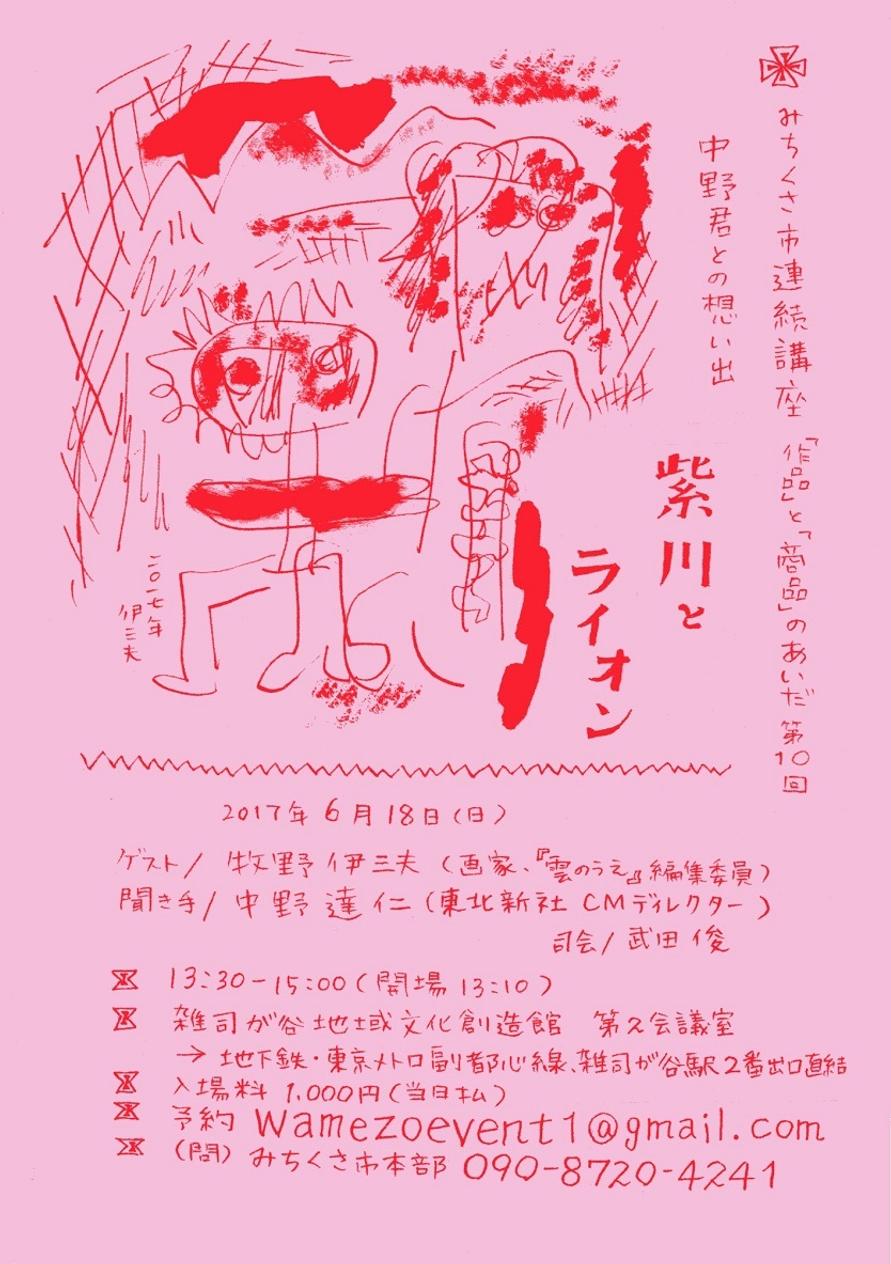 みちくさ市連続講座 『作品』と「商品」のあいだ 第10回
中野君との想い出
紫川と
ライオン
二〇一七年
伊三夫
2017年 6月18日(日)
ゲスト/ 牧野伊三夫 (画家、『雲のうえ』編集委員)
聞き手/ 中野達仁 (東北新社 CMディレクター)
司会/ 武田俊
13:30-15:00 (開場 13:10)
雑司が谷地域文化創造館 第2会議室
→ 地下鉄・東京メトロ副都心線、雑司が谷駅2番出口直結
入場料 1.000円(当日払)
予約 wamezoevent1@gmail.com
(問) みちくさ市本部 090-8720-4241